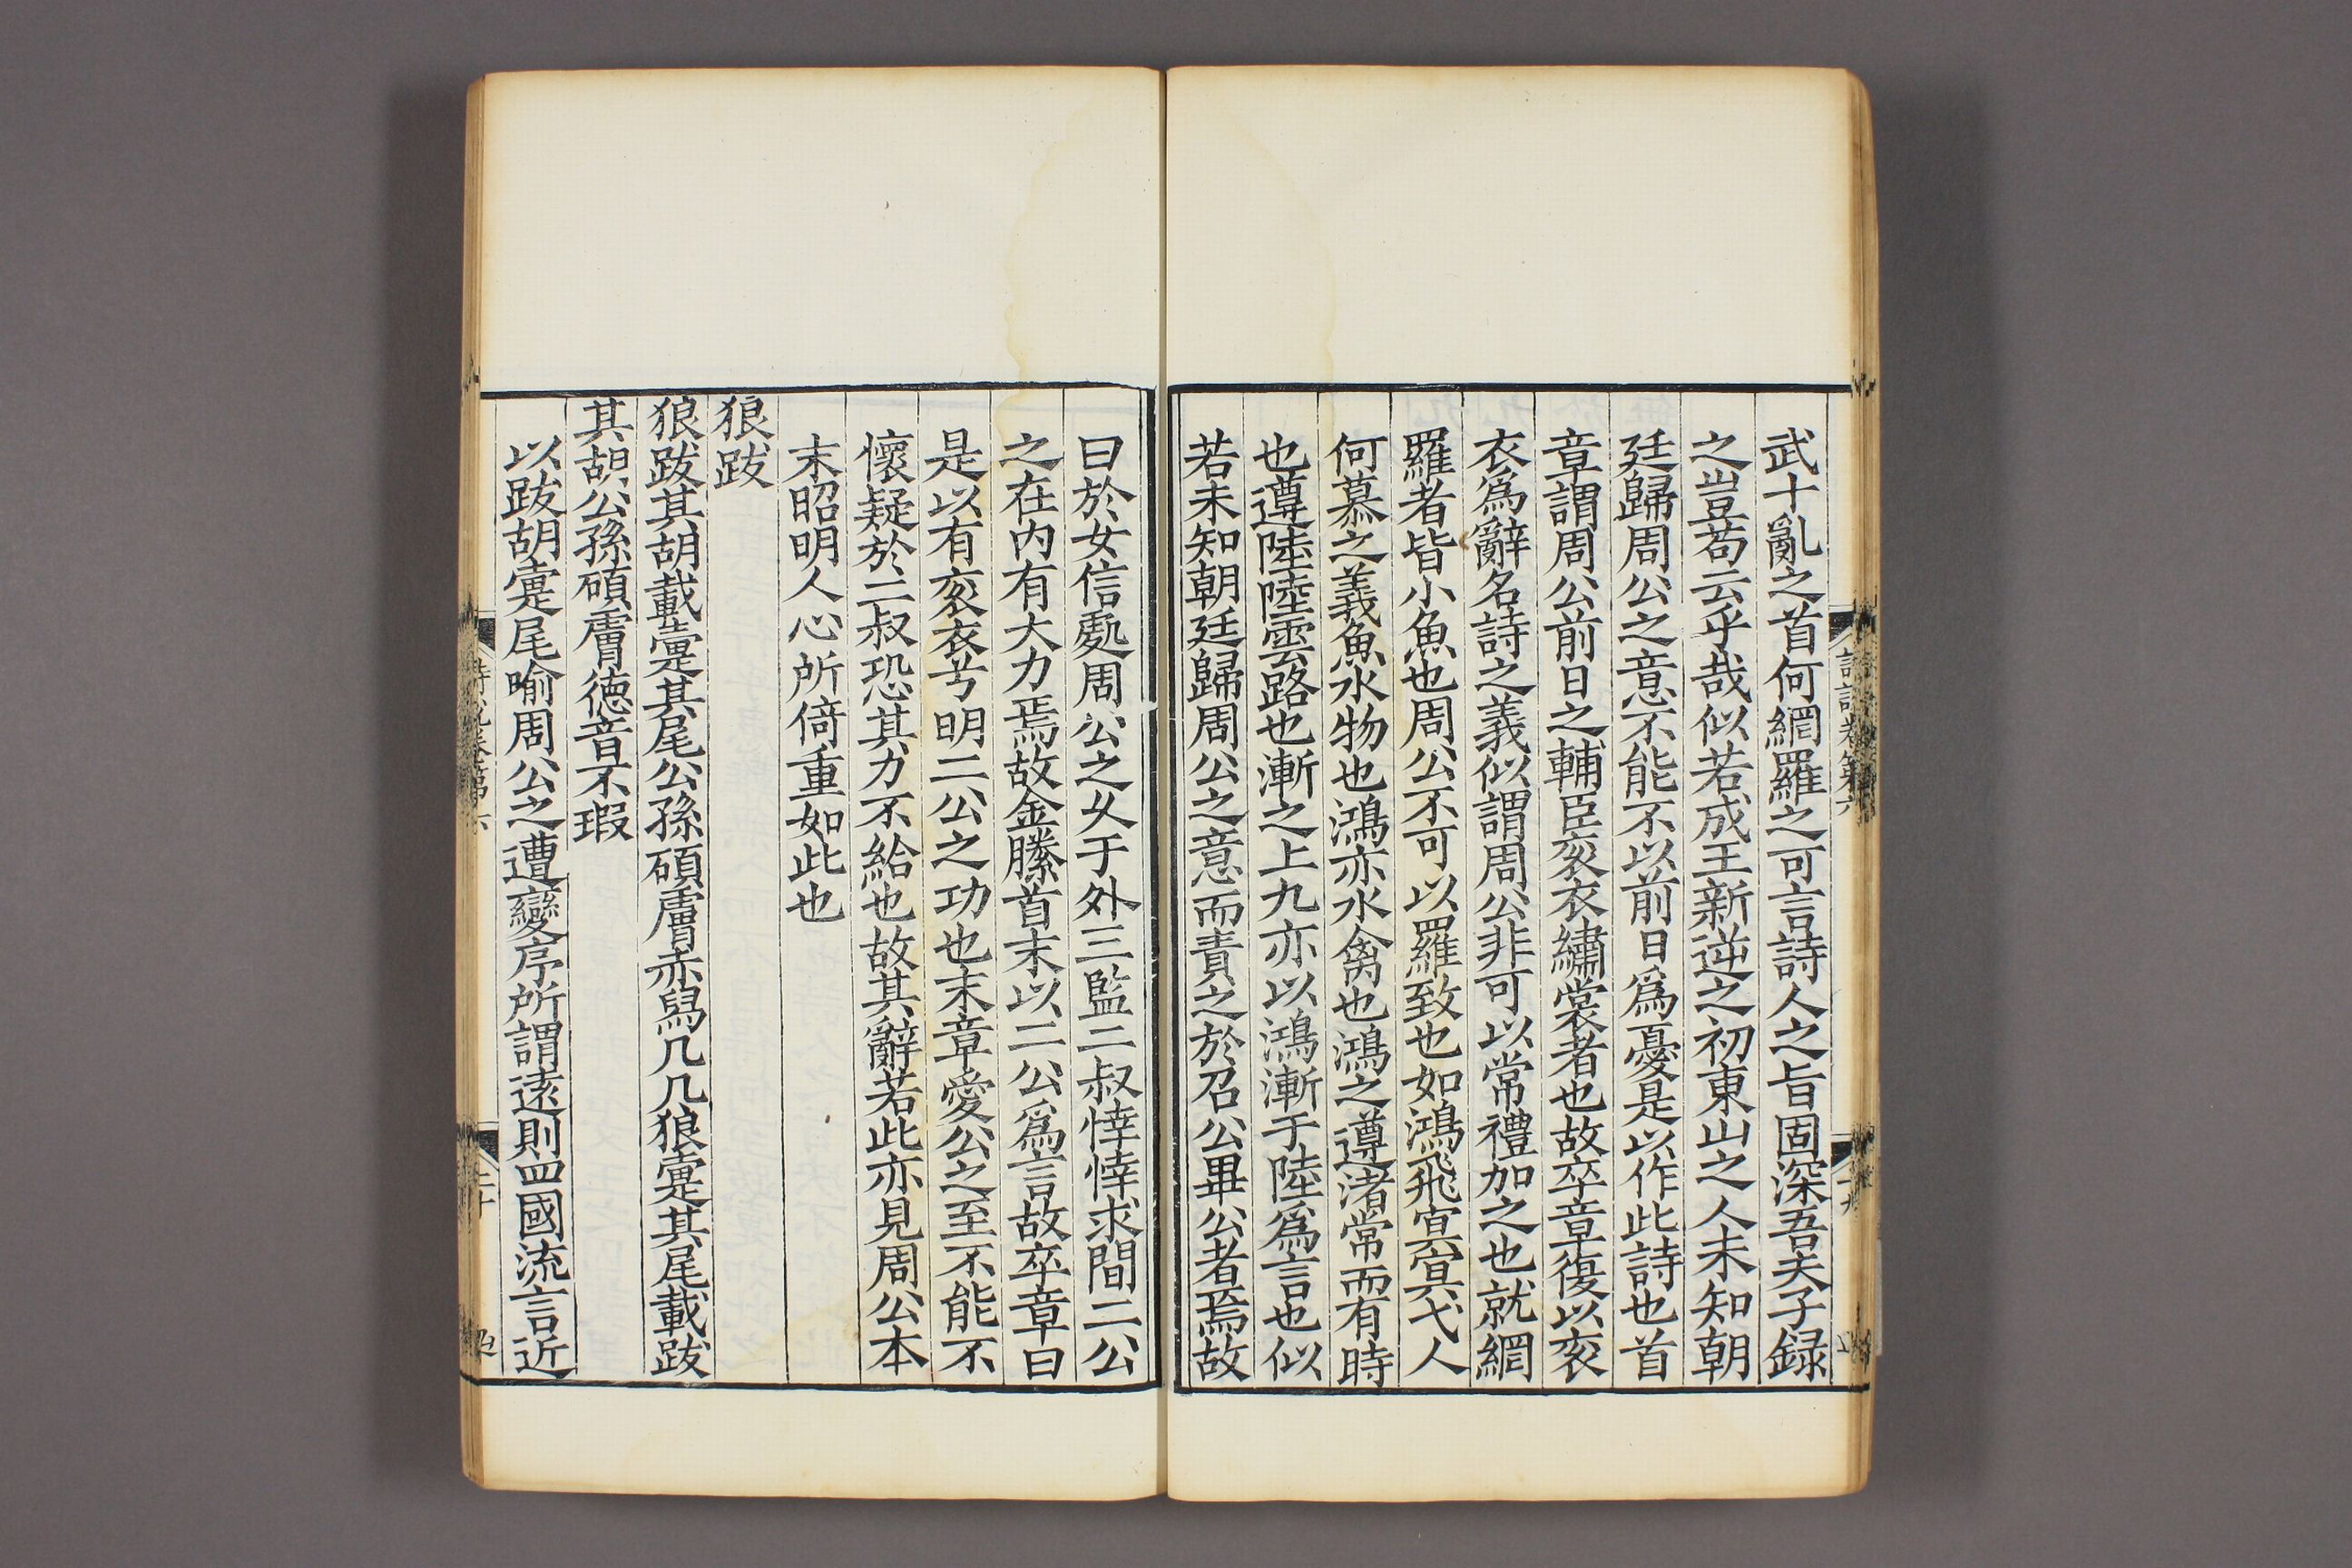 武十亂之首何網羅之可言詩人之旨固深吾夫子録
之豈苟云乎哉似若成王新逆之初東山之人未知朝
廷歸周公之意不能不以前日爲憂是以作此詩也首
章謂周公前日之輔臣衮衣繡裳者也故卒章復以衮
衣爲辭名詩之義似謂周公非可以常禮加之也就網
羅者皆小魚也周公不可以羅致也如鴻飛冥冥弋人
何慕之義魚水物也鴻亦水禽也鴻之遵渚常而有時
也遵陸陸雲路也漸之上九亦以鴻漸于陸爲言也似
若未知朝廷歸周公之意而責之於召公畢公者焉故
曰於女信處周公之乆于外三監二叔悻悻求間二公
之在内有大力焉故金縢首末以二公爲言故卒章曰
是以有衮衣兮明二公之功也末章愛公之至不能不
懷疑於二叔恐其力不給也故其辭若此亦見周公本
末昭明人心所倚重如此也
狼跋
狼跋其胡載疐其尾公孫碩膚赤舄几几狼疐其尾載跋
其胡公孫碩膚德音不瑕
以跋胡疐尾喻周公之遭變序所謂逺則四國流言近
詩説卷第六
二十